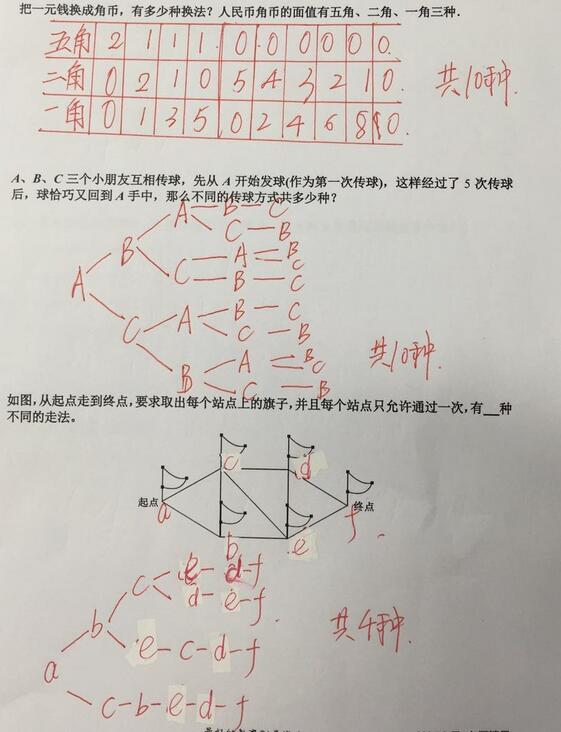 把一元钱换成角币，有多少种换法？人民币角币的面值有五角、二角、一角三种．
五角 2 1 1 1 0 0 0 0 0 0
二角 0 2 1 0 5 4 3 2 1 0
共10种
一角 0 1 3 5 0 2 4 6 8 10
A、B、C 三个小朋友互相传球，先从 A 开始发球(作为第一次传球)，这样经过了 5 次传球
后，球恰巧又回到 A 手中，那么不同的传球方式共多少种？
A—B—C
C—B
B
C—A=B
C
B—C
A
C—A—B—C
C—B
共10种
B—A=B
C
C—B
如图,从起点走到终点,要求取出每个站点上的旗子,并且每个站点只允许通过一次,有__种
不同的走法。
c d
起点 终点
a f
b e
c e-d-f
d-e-f
b
共4种
e-c-d-f
a
c-b-e-d-f